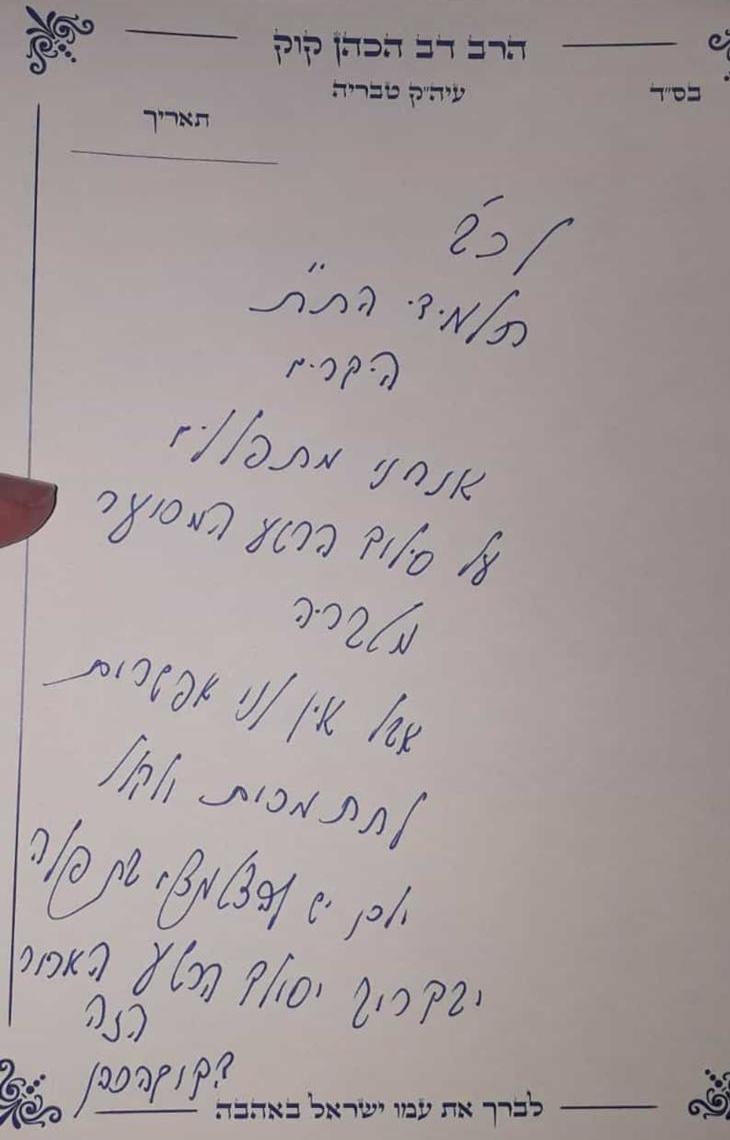 הרב דב הכהן קוק
בס״ד
עיה״ק טבריה
תאריך
לכ׳
תלמידי הת״ת
היקרים
אנחנו מתפללים
על סילוק הרשע המסוער
מטבריה
אבל אין לנו אפשרות
לתת מכות ולקלל
ולכן יש תפלה
שבקרוב יסולק הרשע הארור
הזה
דב קוק הכהן
לברך את עמו ישראל באהבה